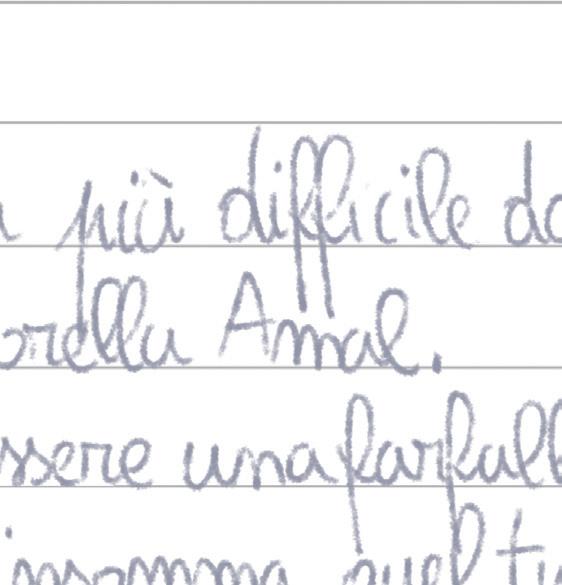 più difficile
orella Amal.
ssere una farfall
insomma quel